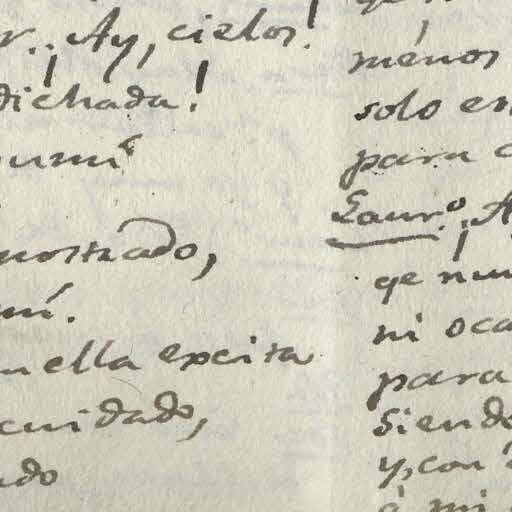 ¡Ay, cielos!
dichada!
mostrado,
mí.
ella excita
cuidado,
ménos
solo en
para
Laur.º ¡A
qe nun
ni oca
para
siendo
y, con
à mi